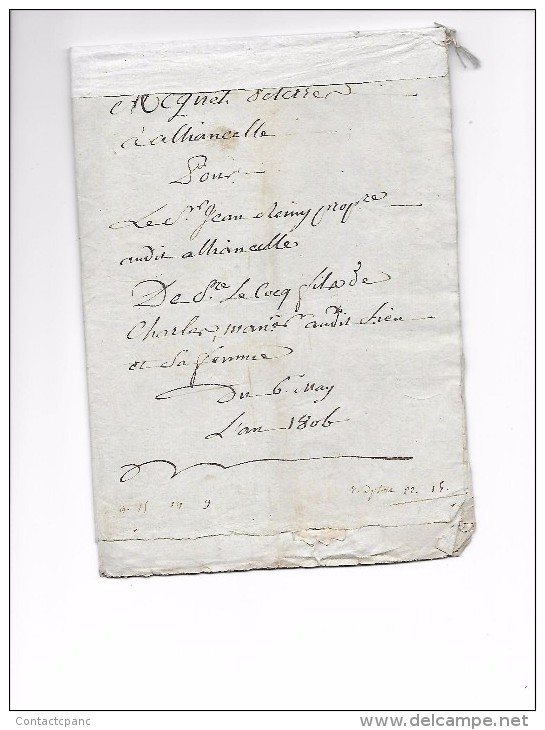 Acquet de terres
à alliancelle
Pour
Le Sr. Jean Remy propre
audit alliancelle
De Pre Le Cocq fils de
Charles, manr. audit Lieu
et Sa femme
Du 6 May
L'an 1806
22 15
Contactcpanc
www.delcampe.net